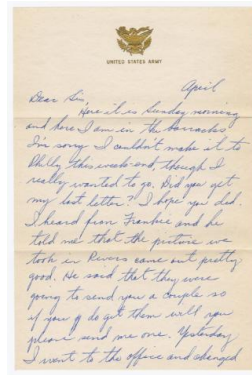 UNITED STATES ARMY
April
Dear Sis
Here it is Sunday morning
and here I am in the barracks
I'm sorry I couldn't make it to
Philly this week-end, though I
really wanted to go. Did you get
my last letter? I hope you did.
I heard from Frankie and he
told me that the picture we
took in Rivers came out pretty
good. He said that they were
going to send you a couple so
if you do get them will you
please send me one. Yesterday
I went to the office and changed